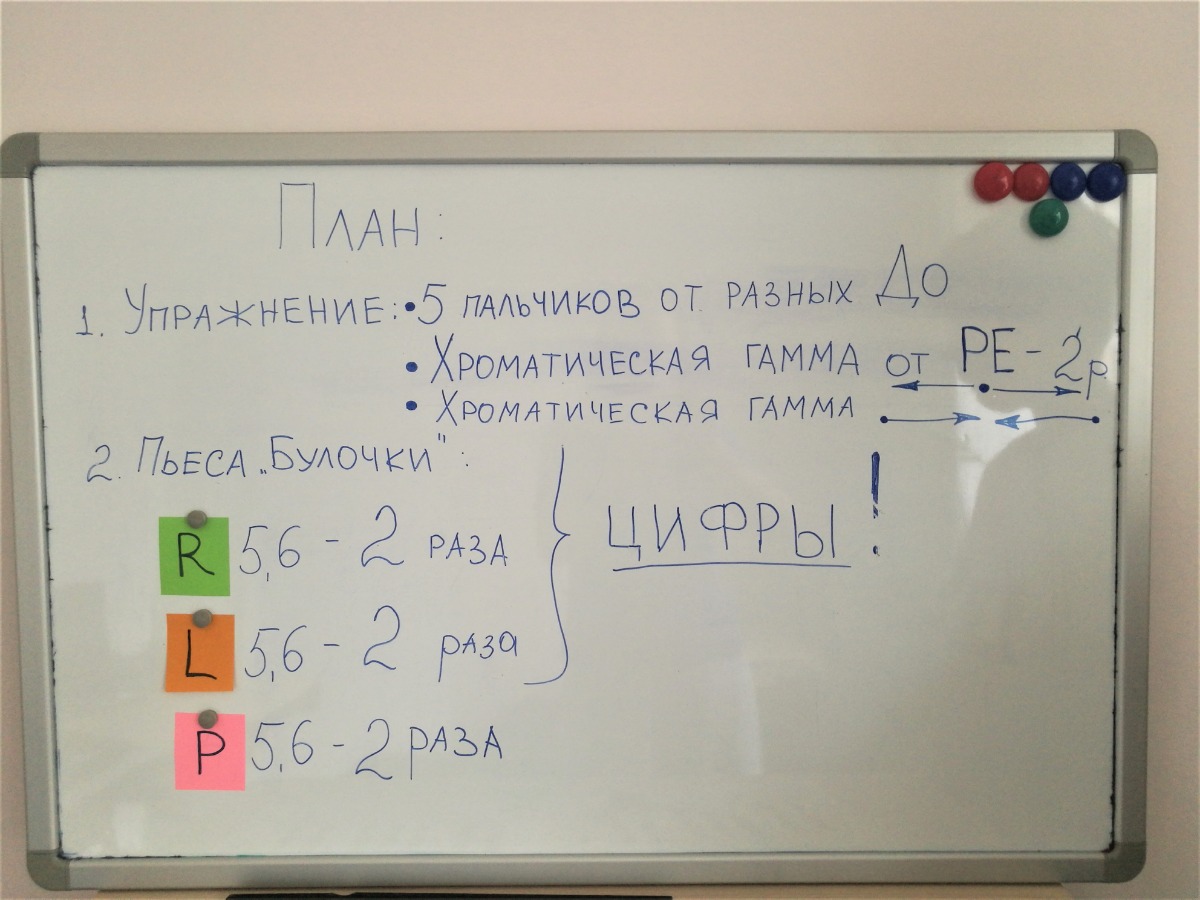 План:
1. Упражнение: • 5 пальчиков от разных До
• Хроматическая гамма от РЕ - 2р
• Хроматическая гамма
2. Пьеса „Булочки":
R 5,6 - 2 раза
ЦИФРЫ!
L 5,6 - 2 раза
P 5,6 - 2 раза